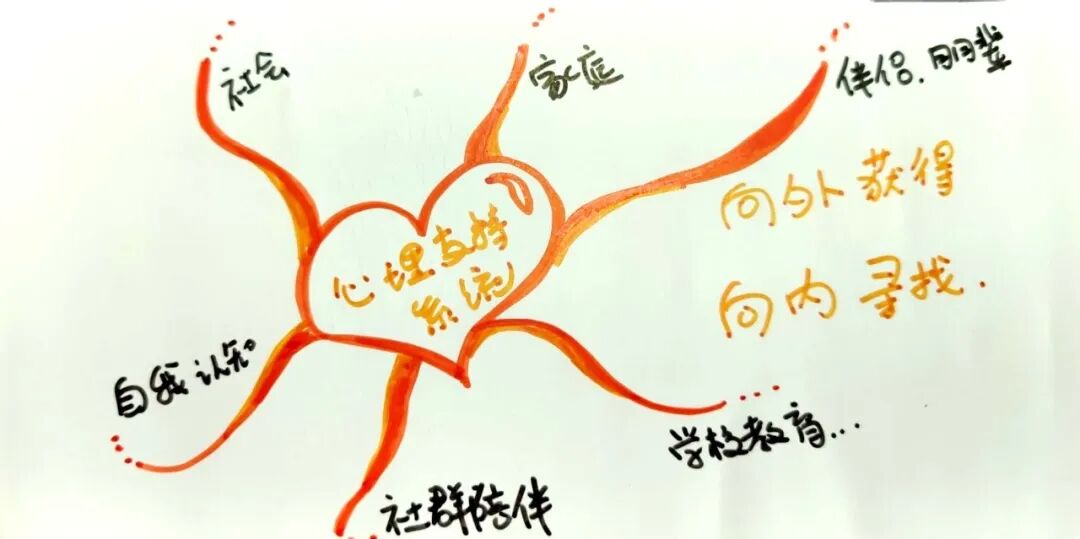 社会
家庭
伴侣.朋辈
向外获得
向内寻找.
心理支持
系统
自我认知
学校教育...
社群陪伴